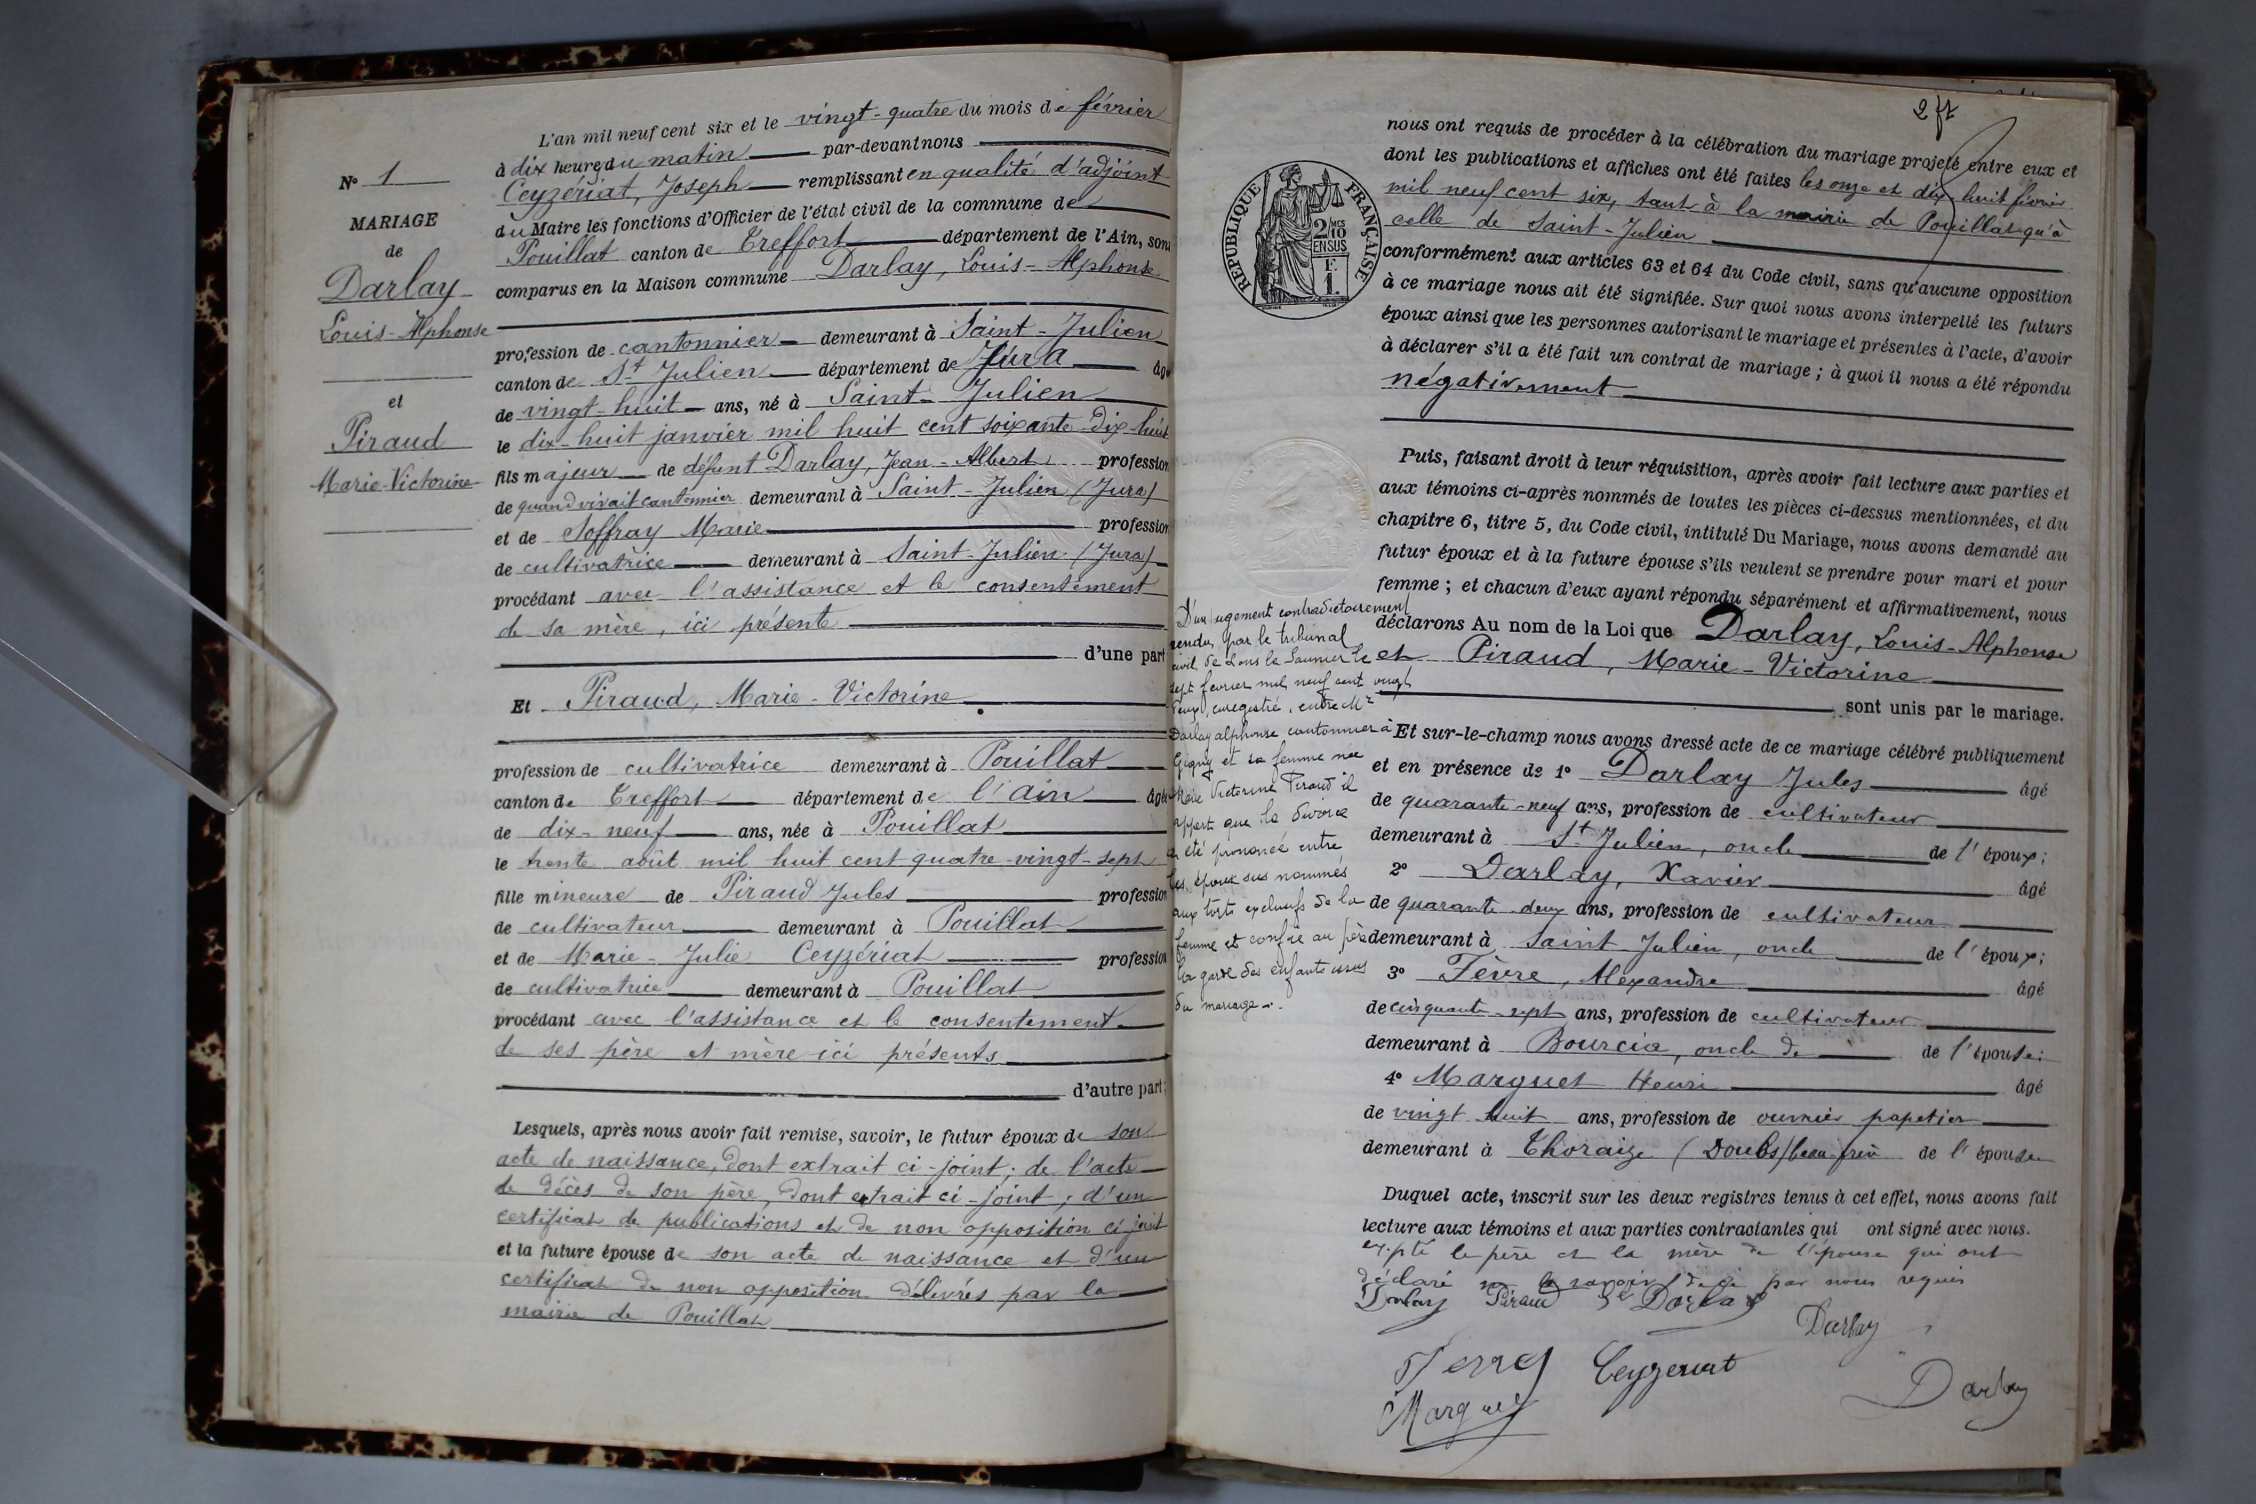 N° 1
MARIAGE
de
Darlay
Louis-Alphonse
et
Piraud
Marie-Victorine
L'an mil neuf cent six et le vingt-quatre du mois de février
à dix heures du matin par-devant nous
Ceyzériat, Joseph remplissant en qualité d'adjoint
du Maire les fonctions d'Officier de l'état civil de la commune de
Pouillat canton de Treffort département de l'Ain, sont
comparus en la Maison commune Darlay, Louis-Alphonse
profession de cantonnier demeurant à Saint-Julien
canton de St Julien département de Jura âgé
de vingt-huit ans, né à Saint-Julien
le dix-huit janvier mil huit cent soixante-dix-huit
fils majeur de défunt Darlay, Jean-Albert profession
de quand vivait cantonnier demeurant à Saint-Julien (Jura)
et de Joffray Marie profession
de cultivatrice demeurant à Saint-Julien (Jura)
procédant avec l'assistance et le consentement
de sa mère, ici présente
d'une part
Et Piraud, Marie-Victorine
profession de cultivatrice demeurant à Pouillat
canton de Treffort département de l'ain âgée
de dix-neuf ans, née à Pouillat
le trente août mil huit cent quatre-vingt-sept
fille mineure de Piraud Jules profession
de cultivateur demeurant à Pouillat
et de Marie-Julie Ceyzériat profession
de cultivatrice demeurant à Pouillat
procédant avec l'assistance et le consentement
de ses père et mère ici présents
d'autre part;
Lesquels, après nous avoir fait remise, savoir, le futur époux de son
acte de naissance, dont extrait ci-joint; de l'acte
de décès de son père, dont extrait ci-joint; d'un
certificat de publications et de non opposition ci joint
et la future épouse de son acte de naissance et d'un
certificat de non opposition délivrés par la
mairie de Pouillat
2 ft
REPUBLIQUE FRANÇAISE
2/10 MES
EN SUS
F.
1.
nous ont requis de procéder à la célébration du mariage projeté entre eux et
dont les publications et affiches ont été faites les onze et dix-huit février
mil neuf cent six, tant à la mairie de Pouillat qu'à
celle de Saint-Julien
conformément aux articles 63 et 64 du Code civil, sans qu'aucune opposition
à ce mariage nous ait été signifiée. Sur quoi nous avons interpellé les futurs
époux ainsi que les personnes autorisant le mariage et présentes à l'acte, d'avoir
à déclarer s'il a été fait un contrat de mariage; à quoi il nous a été répondu
négativement
Puis, faisant droit à leur réquisition, après avoir fait lecture aux parties et
aux témoins ci-après nommés de toutes les pièces ci-dessus mentionnées, et du
chapitre 6, titre 5, du Code civil, intitulé Du Mariage, nous avons demandé au
futur époux et à la future épouse s'ils veulent se prendre pour mari et pour
femme; et chacun d'eux ayant répondu séparément et affirmativement, nous
déclarons Au nom de la Loi que Darlay, Louis-Alphonse
et Piraud, Marie-Victorine
sont unis par le mariage.
Et sur-le-champ nous avons dressé acte de ce mariage célébré publiquement
et en présence de 1° Darlay Jules âgé
de quarante-neuf ans, profession de cultivateur
demeurant à St Julien, oncle de l'époux;
2° Darlay, Xavier âgé
de quarante deux ans, profession de cultivateur
demeurant à Saint Julien, oncle de l'époux;
3° Fèvre, Alexandre âgé
de cinquante-sept ans, profession de cultivateur
demeurant à Bourcia, oncle de de l'épouse;
4° Marguet Henri âgé
de vingt huit ans, profession de ouvrier papetier
demeurant à Thoraise (Doubs) beau-frère de l'épouse
Duquel acte, inscrit sur les deux registres tenus à cet effet, nous avons fait
lecture aux témoins et aux parties contractantes qui ont signé avec nous.
expté le père et la mère de l'épouse qui ont
déclaré ne le savoir de ce par nous requis
Darlay Piraud Darlay
Darlay
Ceyzeriat
Marguet
Darlay
D'un jugement contradictoirement
rendu par le tribunal
civil de Lons le Saunier le
sept février mil neuf cent vingt
deux, enregistré, entre Mr
Darlay alphonse cantonnier à
Gigny et sa femme née
Marie Victorine Piraud il
appert que le divorce
a été prononcé entre
les époux sus nommés
aux torts exclusifs de la
femme et confie au père
la garde des enfants issus
du mariage.